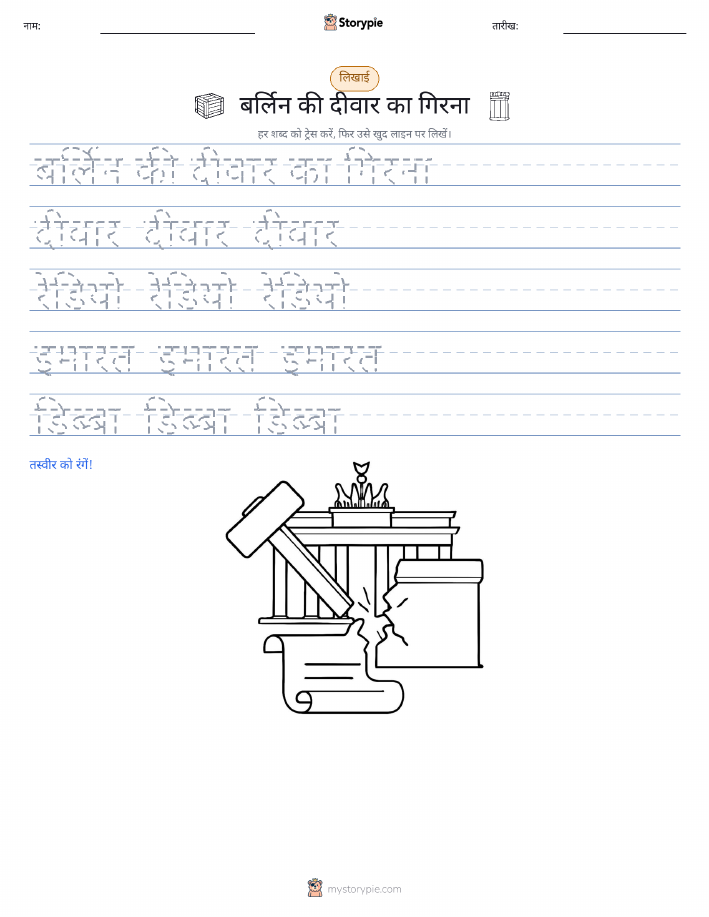 नाम:
Storypie
तारीख:
लिखाई
बर्लिन की दीवार का गिरना
हर शब्द को ट्रेस करें, फिर उसे खुद लाइन पर लिखें।
बर्लिन की दीवार का गिरना
दीवार दीवार दीवार
रेडियो रेडियो रेडियो
इमारत इमारत इमारत
डिब्बा डिब्बा डिब्बा
तस्वीर को रंगें!
mystorypie.com